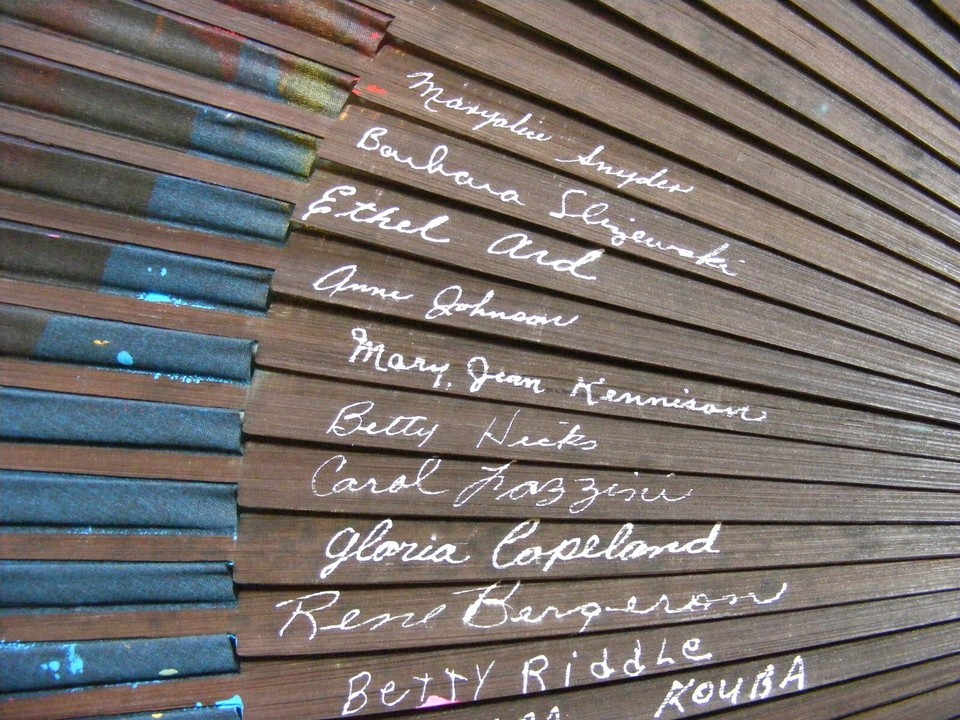 Maryalice Snyder
Barbara Slizewski
Ethel Ard
Anne Johnson
Mary Jean Kennison
Betty Hicks
Carol Fazzini
Gloria Copeland
Rene Bergeron
BETTY RiddLE
KOUBA